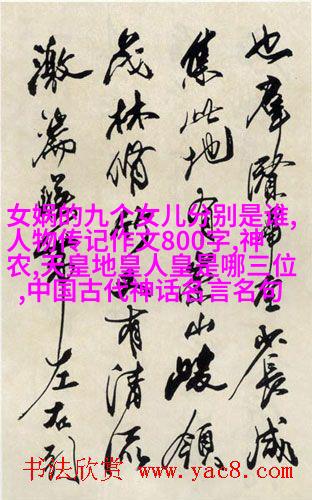 也羣賢畢至少長咸
集此地有崇山峻領
茂林脩竹又有清流
激湍暎帶左右引
女娲的九个女儿分别是谁,
人物传记作文800字,神
农,天皇地皇人皇是哪三位
,中国古代神话名言名句
书法欣赏 www.yac8.com